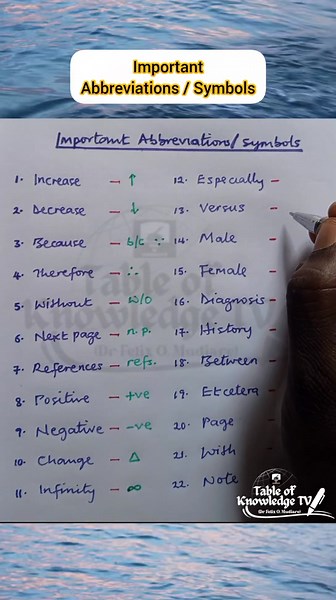 Important
Abbreviations / Symbols
Important Abbreviations/symbols
1. Increase — ↑
2. Decrease — ↓
3. Because — b/c ∵
4. Therefore — ∴
5. Without — w/o
6. Next page — n.p.
7. References — refs.
8. Positive — +ve
9. Negative — -ve
10. Change — Δ
11. Infinity — ∞
12. Especially —
13. Versus —
14. Male —
15. Female
16. Diagnosis —
17. History —
18. Between
19. Etcetera
20. Page
21. With
22. Note
Table of
Knowledge TV
(Dr Felix O Mudiare)
Table of
Knowledge TV
(Dr Felix O Mudiare)